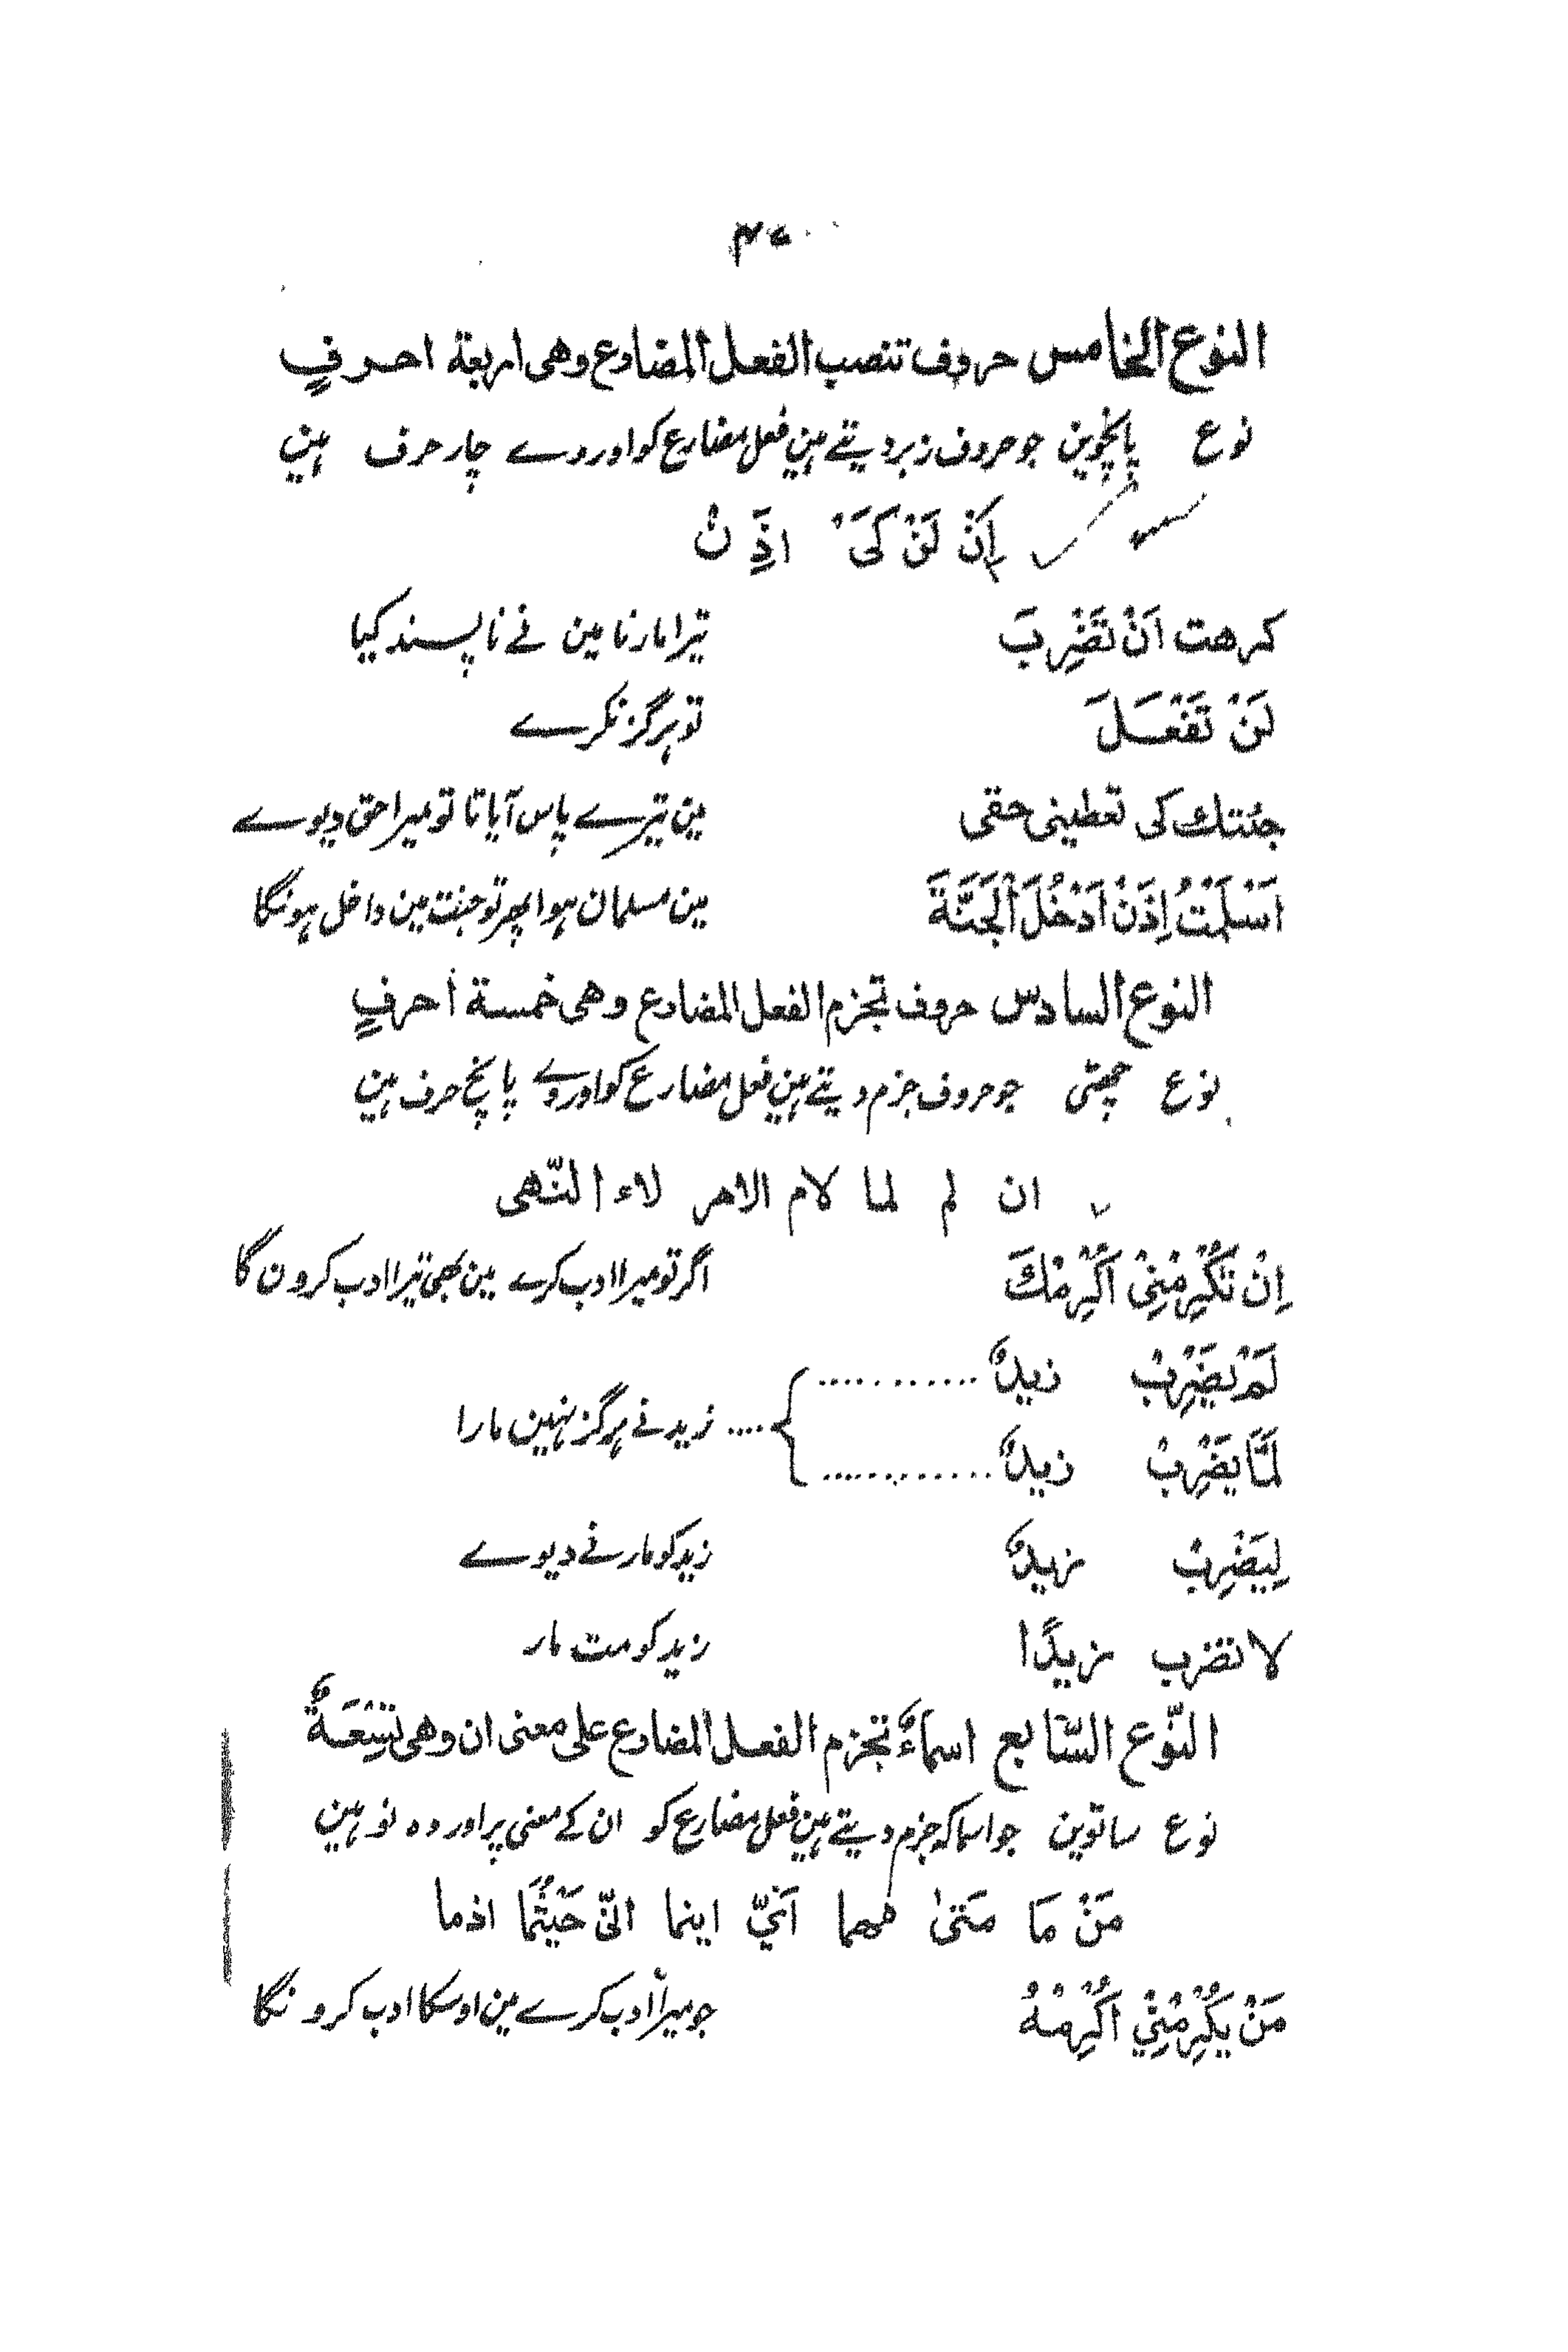 النوع الخامس حروف تنصب الفعل المضارع وهی اربعة احرفٍ
نوع پانچوین جو حروف زبر دیتے ہین فعل مضارع کو اور وے چار حرف ہین
اَنْ لَنْ کَیَْ اِذَنْ
کرهت اَنْ تَضْرِبَ تیرا مارنا مین نے ناپسند کیا
لَنْ تَفْعَلَ تو ہرگز نکرے
جئتك کی تعطینی حقی مین تیرے پاس آیا تا تو میرا حق دیوے
اَسْلَمْتُ اِذَنْ اَدْخُلَ الْجَنَّةَ مین مسلمان ہوا پھر تو جنت مین داخل ہونگا
النوع السادس حروف تجزم الفعل المضارع وهی خمسة احرفٍ
نوع چھٹی جو حروف جزم دیتے ہین فعل مضارع کو اور وے پانچ حرف ہین
ان لم لما لام الامر لاء النّهی
اِنْ تُكْرِمْنِیْ اُكْرِمْكَ اگر تو میرا ادب کرے مین بھی تیرا ادب کرون گا
لَمْ یَضْرِبْ زیدٌ
زید نے ہرگز نہین مارا
لَمَّا یَضْرِبْ زیدٌ
لِیَضْرِبْ زیدٌ زید کو مارنے دیوے
لا تضرب زیدًا زید کو مت مار
النّوع السّابع اسماءٌ تجزم الفعل المضارع علی معنی ان وهی تِسْعَةٌ
نوع ساتوین جو اسما کہ جزم دیتے ہین فعل مضارع کو ان کے معنی پر اور وہ نو ہین
مَنْ مَا مَتیٰ مهما اَیّ اینما انّی حَیْثُمَا اذما
مَنْ یُكْرِمْنِیْ اُكْرِمْهُ جو میرا ادب کرے مین اوسکا ادب کرونگا